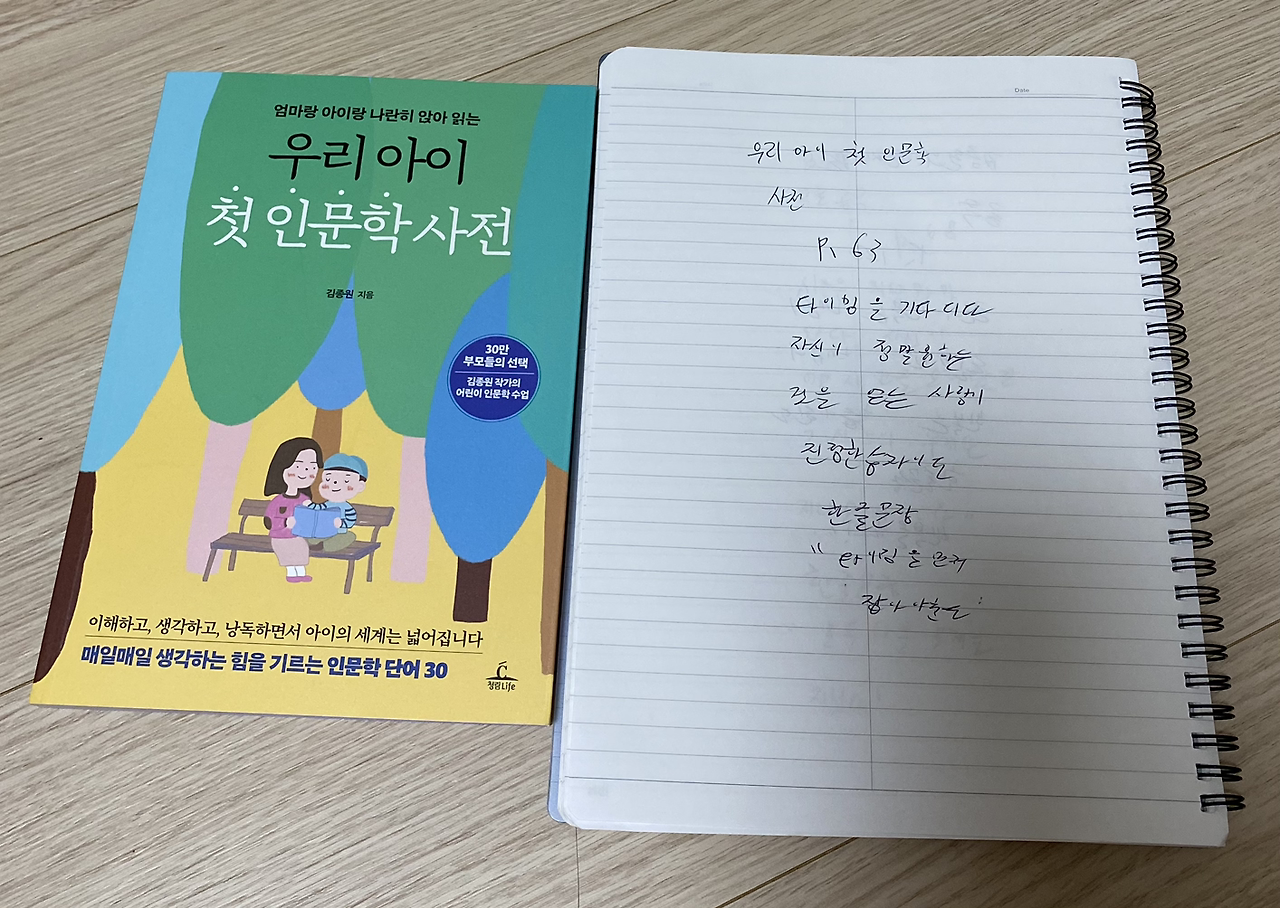 엄마랑 아이랑 나란히 앉아 읽는
우리 아이
첫 인문학 사전
김종원 지음
30만
부모들의 선택
김종원 작가의
어린이 인문학 수업
이해하고, 생각하고, 낭독하면서 아이의 세계는 넓어집니다
매일매일 생각하는 힘을 기르는 인문학 단어 30
청림Life
Date
우리 아이 첫 인문학
사전
P. 63
타이밍을 기다리다
자신이 정말 원하는
것을 아는 사람이
진정한 승자이다
한글문장
" 타이밍을 먼저